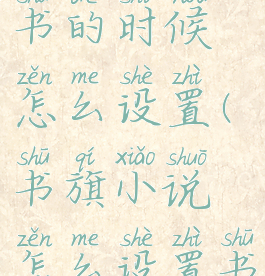 书的时候
zěn me shè zhì
怎么设置(
shū qí xiǎo shuō
书旗小说
zěn me shè zhì shū
怎么设置书